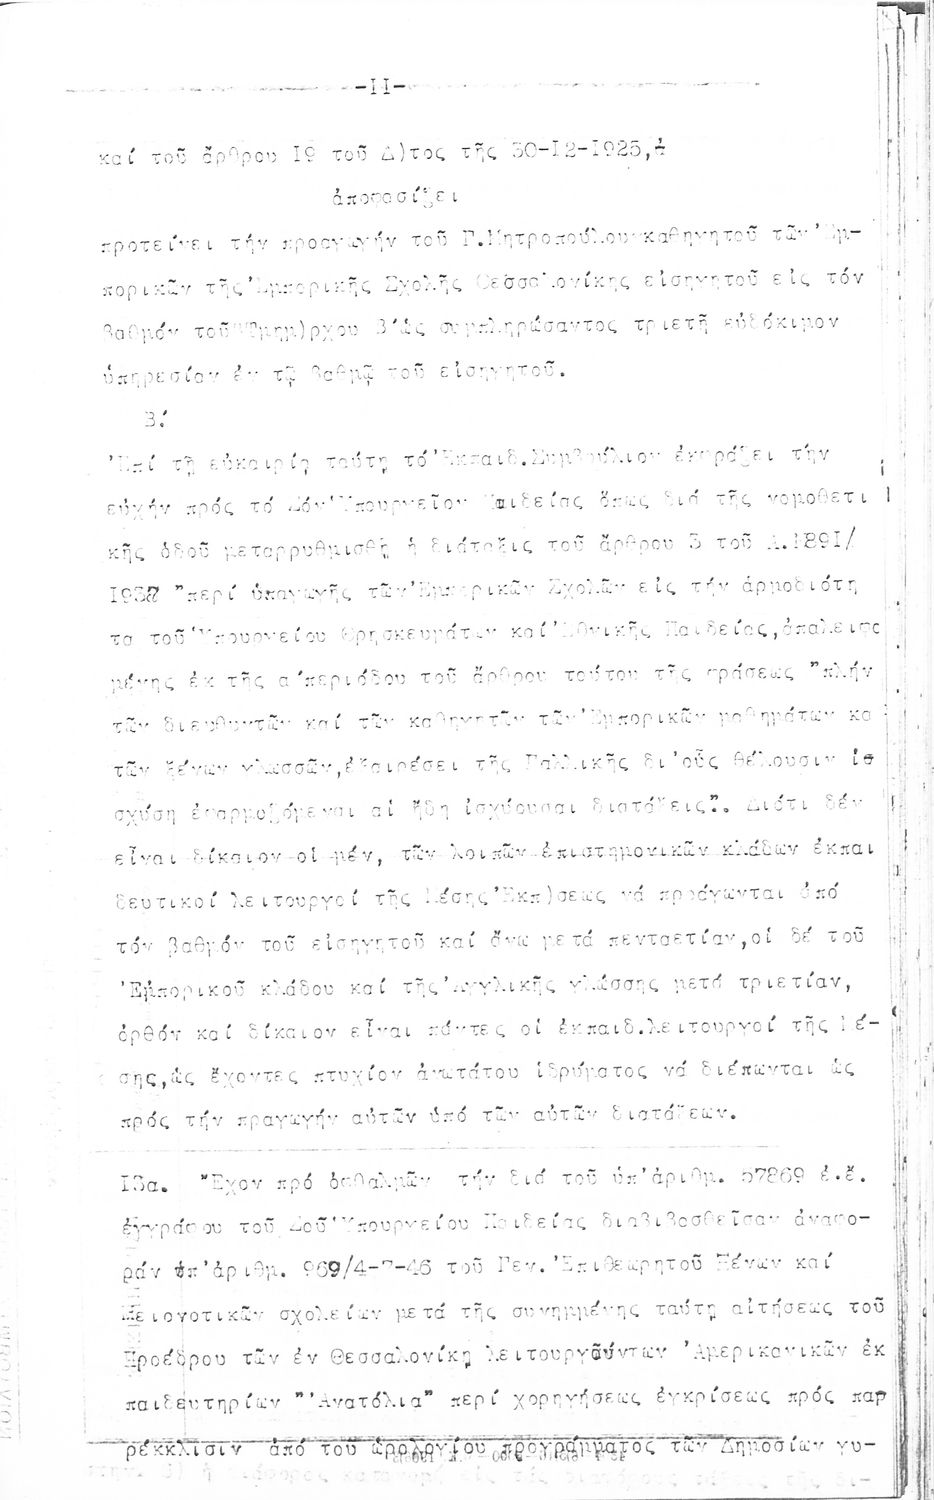 -II-
καί τοῦ ἄρθρου I9 τοῦ Δ)τος τῆς 30-I2-I925,
ἀποφασίζει
προτείνει τήν προαγωγήν τοῦ Γ.Μητροπούλου καθηγητοῦ τῶν Ἐμ-
πορικῶν τῆς Ἐμπορικῆς Σχολῆς Θεσσαλονίκης εἰσηγητοῦ εἰς τόν
βαθμόν τοῦ Τμημ)ρχου Β΄ὡς συμπληρώσαντος τριετῆ εὐδόκιμον
ὑπηρεσίαν ἐν τῷ βαθμῷ τοῦ εἰσηγητοῦ.
Β΄.
Ἐπί τῇ εὐκαιρίᾳ ταύτῃ τό Ἐκπαιδ.Συμβούλιον ἐκφράζει τήν
εὐχήν πρός τό Σόν Ὑπουργεῖον Παιδείας ὅπως διά τῆς νομοθετι
κῆς ὁδοῦ μεταρρυθμισθῇ ἡ διάταξις τοῦ ἄρθρου 3 τοῦ Α.I89I/
I93 "περί ὑπαγωγῆς τῶν Ἐμπορικῶν Σχολῶν εἰς τήν ἁρμοδιότη
τα τοῦ Ὑπουργείου Θρησκευμάτων καί Ἐθνικῆς Παιδείας,ἀπαλειφο
μένης ἐκ τῆς α΄περιόδου τοῦ ἄρθρου τούτου τῆς φράσεως "πλήν
τῶν διευθυντῶν καί τῶν καθηγητῶν τῶν Ἐμπορικῶν μαθημάτων κα
τῶν ξένων γλωσσῶν,ἐξαιρέσει τῆς Γαλλικῆς δι'οὕς θέλουσιν ἰσ
σχύση ἐφαρμοζόμεναι αἱ ἤδη ἰσχύουσαι διατάξεις". Διότι δέν
εἶναι δίκαιον οἱ μέν, τῶν λοιπῶν ἐπιστημονικῶν κλάδων ἐκπαι
δευτικοί λειτουργοί τῆς Μέσης Ἐκπ)σεως νά προάγωνται ἀπό
τόν βαθμόν τοῦ εἰσηγητοῦ καί ἄνω μετά πενταετίαν,οἱ δέ τοῦ
Ἐμπορικοῦ κλάδου καί τῆς Ἀγγλικῆς γλώσσης μετά τριετίαν,
ὀρθόν καί δίκαιον εἶναι πάντες οἱ ἐκπαιδ.λειτουργοί τῆς Μέ-
σης,ὡς ἔχοντες πτυχίον ἀνωτάτου ἱδρύματος νά διέπωνται ὡς
πρός τήν πραγωγήν αὐτῶν ὑπό τῶν αὐτῶν διατάξεων.
I3α. Ἔχον πρό ὀφθαλμῶν τήν διά τοῦ ὑπ'ἀριθμ. 57869 ἐ.ἔ.
ἐγγράφου τοῦ Σοῦ Ὑπουργείου Παιδείας διαβιβασθεῖσαν ἀναφο-
ράν ὑπ'ἀριθμ. 969/4-7-46 τοῦ Γεν.Ἐπιθεωρητοῦ Ξένων καί
Μειονοτικῶν σχολείων μετά τῆς συνημμένης ταύτῃ αἰτήσεως τοῦ
Προέδρου τῶν ἐν Θεσσαλονίκῃ λειτουργούντων Ἀμερικανικῶν ἐκ
παιδευτηρίων "Ἀνατόλια" περί χορηγήσεως ἐγκρίσεως πρός παρ
ρέκκλισιν ἀπό τοῦ ὡρολογίου προγράμματος τῶν Δημοσίων γυ-